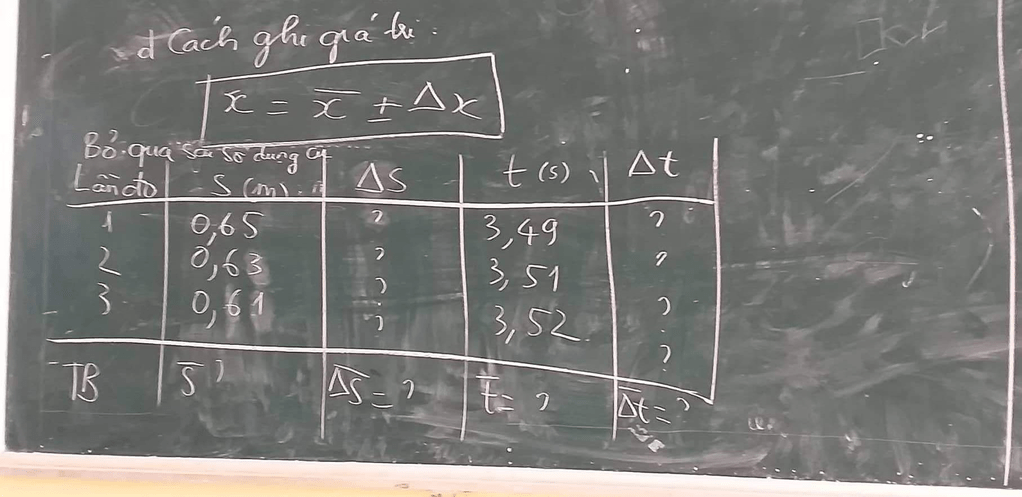 d Cách ghi giá trị:
x = x̄ ± Δx
Bỏ qua sai số dụng cụ
Lần đo S (m) ΔS t (s) Δt
1 0,65 ? 3,49 ?
2 0,63 ? 3,51 ?
3 0,61 ? 3,52 ?
? ?
TB S̄ ? Δ̄S̄ = ? t̄ = ? Δ̄t = ?